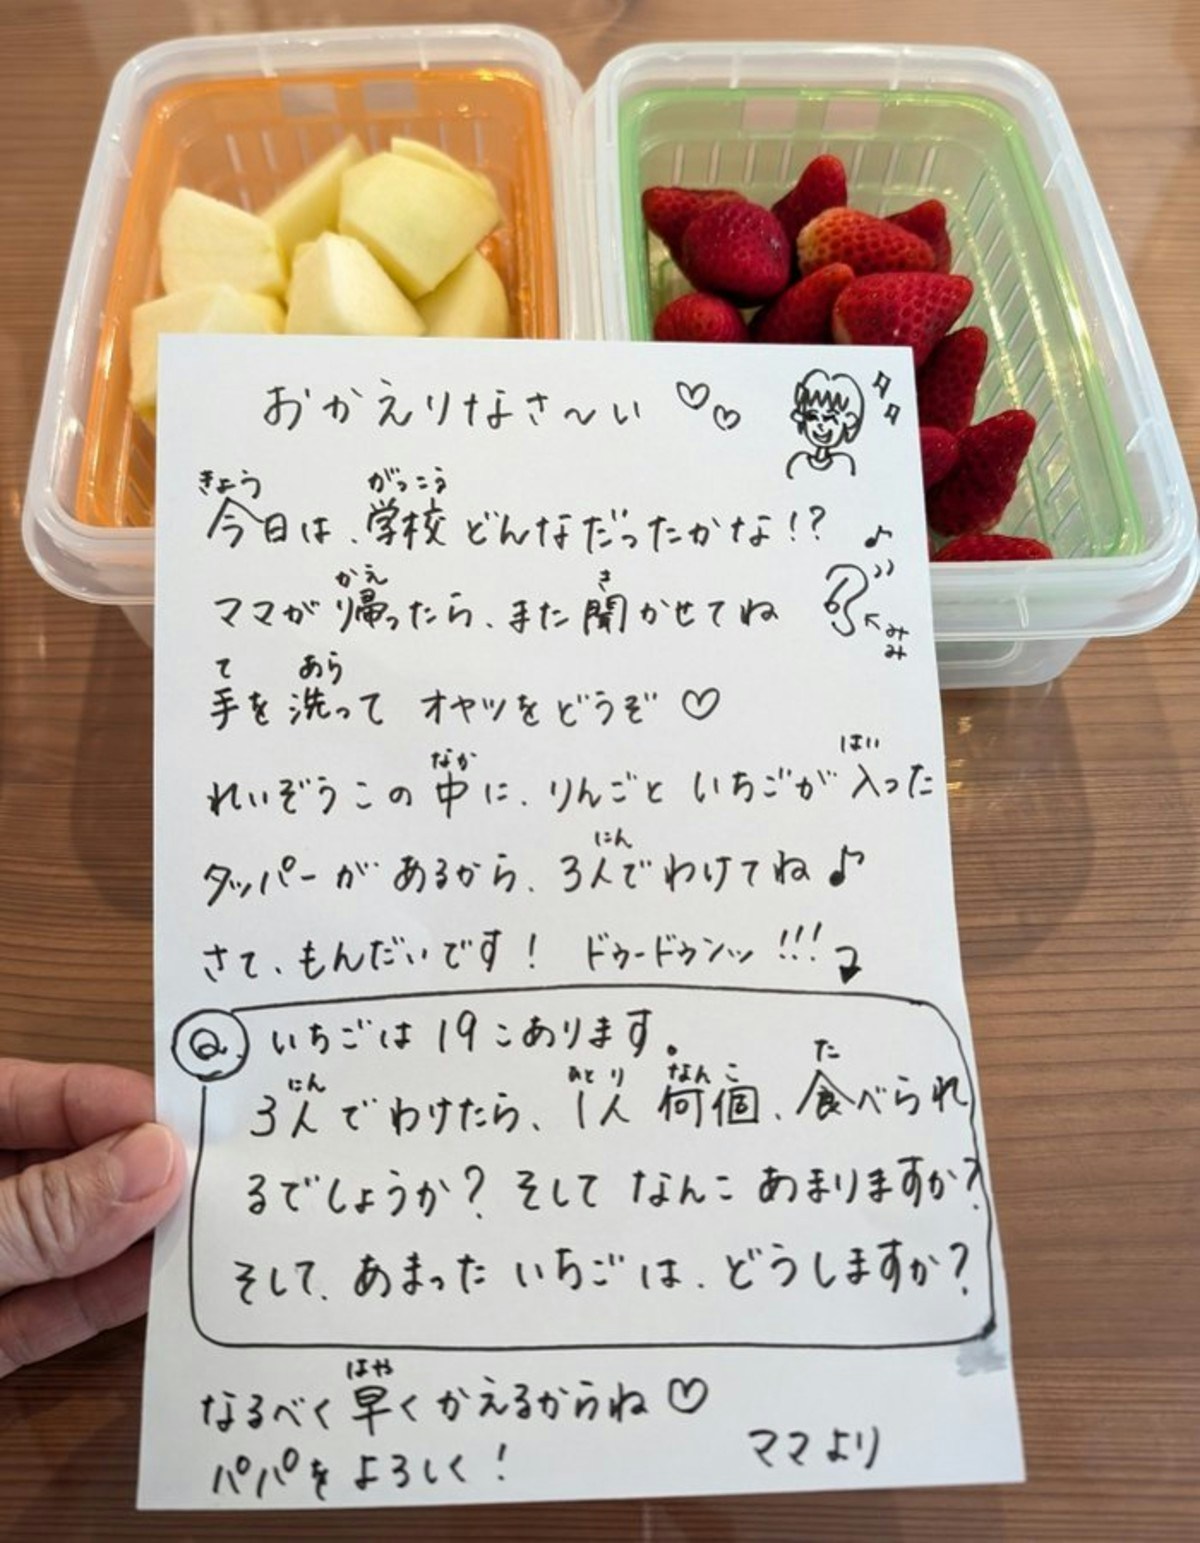 おかえりなさ〜い
きょう がっこう
今日は、学校どんなだったかな!?
かえ き
ママが帰ったら、また聞かせてね
みみ
て あら
手を洗って オヤツをどうぞ
なか はい
れいぞうこの中に、りんごと いちごが入った
にん
タッパーがあるから、3人でわけてね
さて、もんだいです! ドゥードゥンッ!!!
Q いちごは19こあります。
にん ひとり なんこ た
3人でわけたら、1人 何個、食べられ
るでしょうか? そして なんこ あまりますか?
そして、あまった いちごは、どうしますか?
はや
なるべく早くかえるからね
パパをよろしく!
ママより